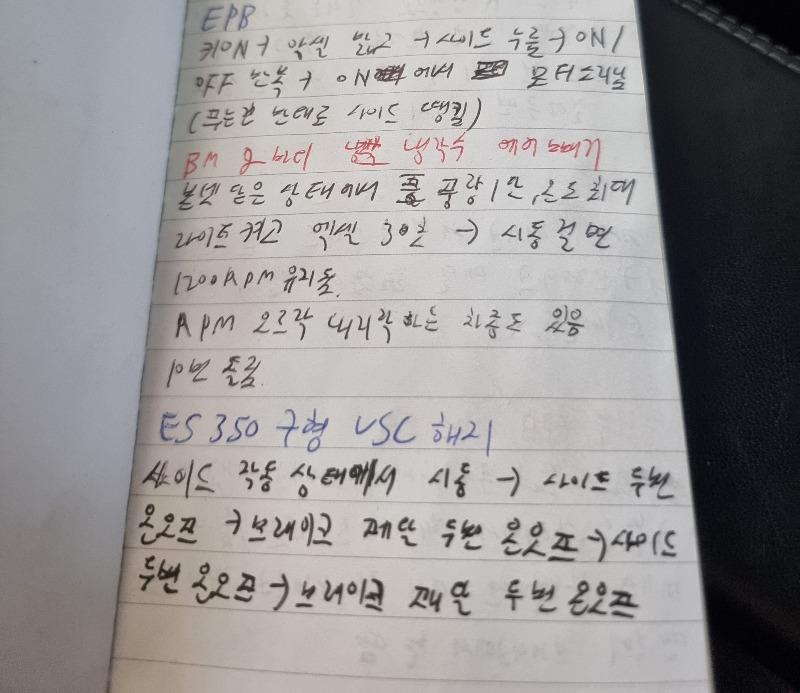 EPB
키ON → 악셀 밟고 → 사이드 누름 → ON/
OFF 반복 → ON에서 모터소리남
(푸는건 반대로 사이드 땡김)
BM 2 보더 냉각수 에어빼기
본넷 닫은 상태에서 풍량1단, 온도최대
라이트켜고 엑셀 30초 → 시동걸면
1200RPM 유지됨.
RPM 오르락 내리락 하는 차종도 있음
10번 돌림.
ES 350 구형 VSC 해지
사이드 작동 상태에서 시동 → 사이드 두번
온오프 → 브레이크 페달 두번 온오프 → 사이드
두번 온오프 → 브레이크 페달 두번 온오프